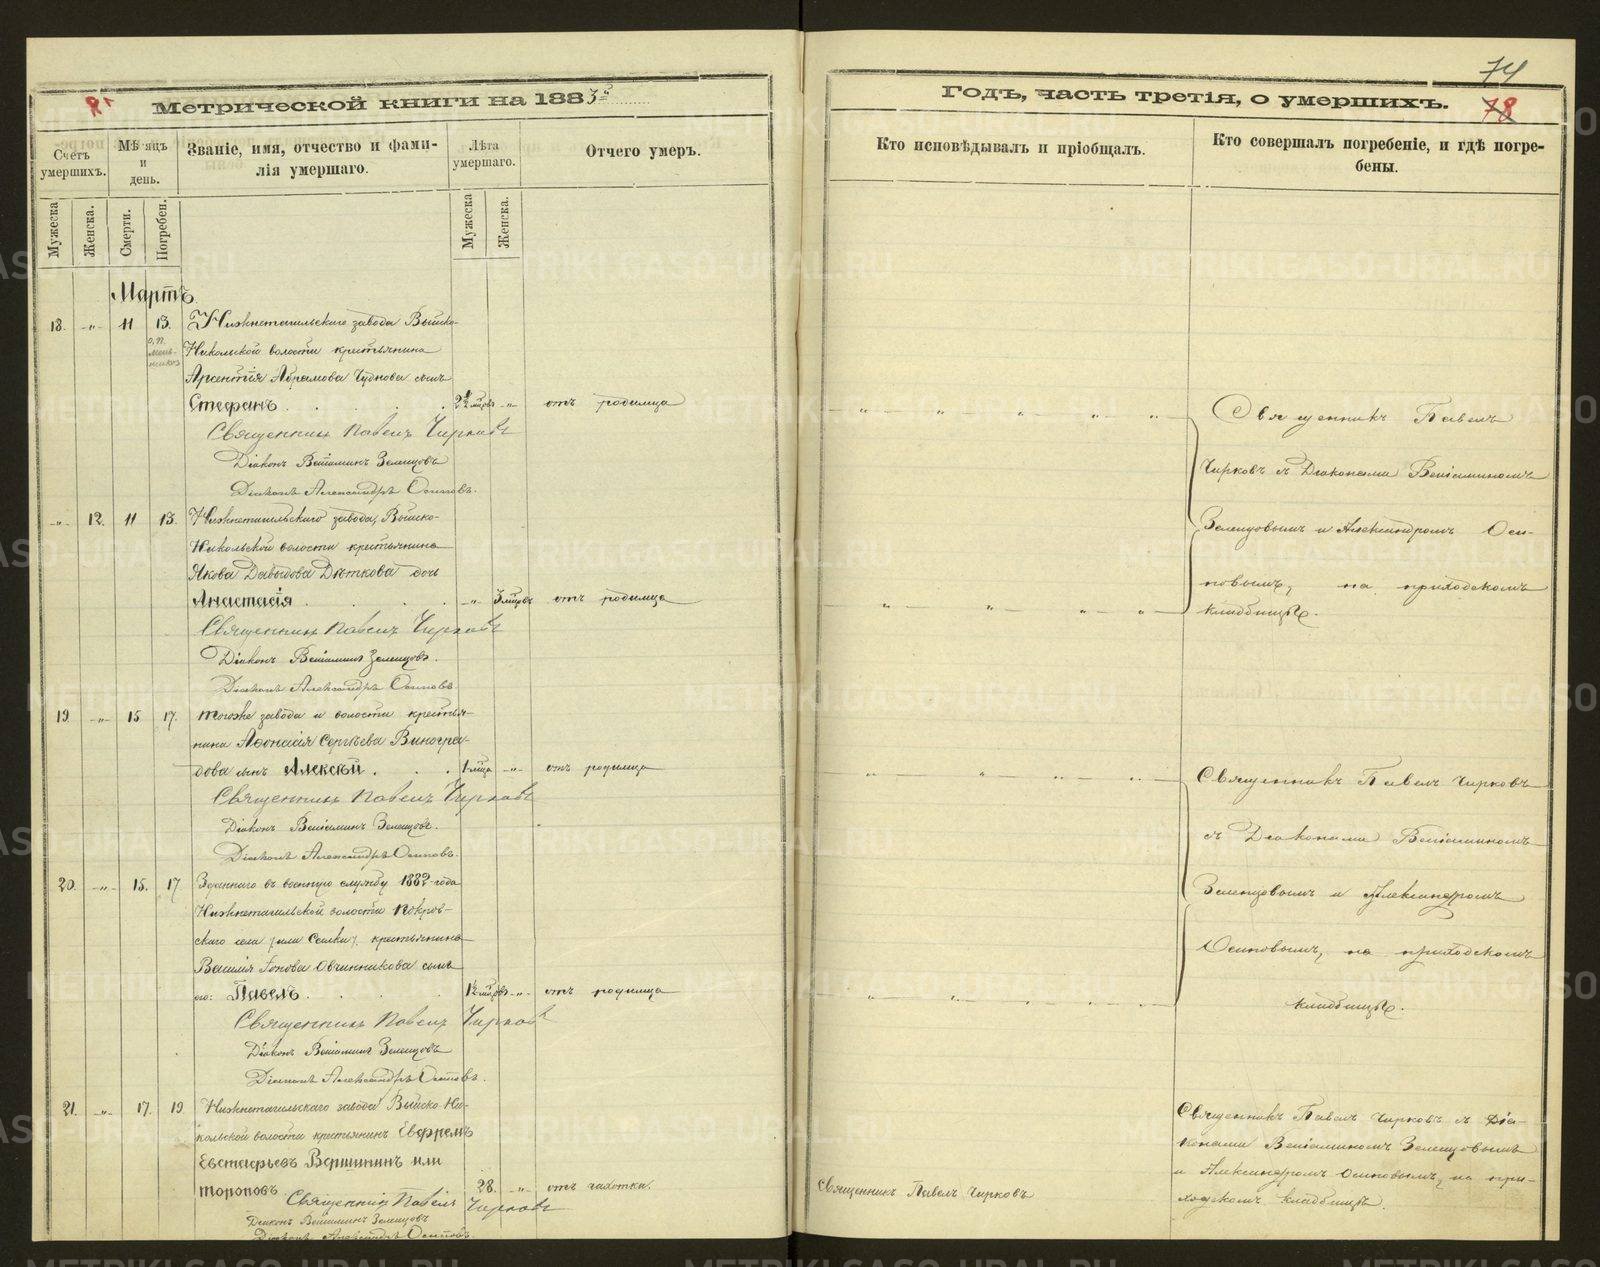 Метрической книги на 1883й
Счетъ умершихъ.
Мѣсяцъ и день.
Званіе, имя, отчество и фами-
лія умершаго.
Лѣта умершаго.
Отчего умеръ.
Мужеска
Женска.
Смерти.
Погребен.
Мужеска
Женска.
Мартъ.
18. -"- 11 13. Нижнетагильскаго завода Выйско-
Никольской волости крестьянина
Арсентія Абрамова Чуднова сынъ
Стефанъ . . . . 2½ мцовъ -"- отъ родимца
Священникъ Павелъ Чирковъ
Діаконъ Веніаминъ Зеленцовъ
Діаконъ Александръ Осиповъ.
-"- 12. 11 13. Нижнетагильскаго завода, Выйско-
Никольской волости крестьянина
Якова Давыдова Дѣткова дочь
Анастасія . . . . -"- 3 мцовъ отъ родимца
Священникъ Павелъ Чирковъ
Діаконъ Веніаминъ Зеленцовъ.
Діаконъ Александръ Осиповъ.
19. -"- 15 17. Тогоже завода и волости крестья-
нина Афонасія Сергѣева Виногра-
дова сынъ Алексѣй . . . 1 мца -"- отъ родимца
Священникъ Павелъ Чирковъ
Діаконъ Веніаминъ Зеленцовъ.
Діаконъ Александръ Осиповъ.
20. -"- 15. 17 Взятаго въ военную службу 1882 года
Нижнетагильской волости Покров-
скаго села крестьянина
Василія Іонова Овчинникова сынъ
его: Павелъ . . . . 1½ мцовъ -"- отъ родимца
Священникъ Павелъ Чирковъ
Діаконъ Веніаминъ Зеленцовъ
Діаконъ Александръ Осиповъ.
21. -"- 17. 19 Нижнетагильскаго завода Выйско-Ни-
кольской волости крестьянинъ Евфремъ
Евстафьевъ Вершининъ или
Тороповъ 28. -"- отъ чахотки.
Священникъ Павелъ Чирковъ
Діаконъ Веніаминъ Зеленцовъ
Діаконъ Александръ Осиповъ.
74
78
Годъ, часть третія, о умершихъ.
Кто исповѣдывалъ и пріобщалъ.
Кто совершалъ погребеніе, и гдѣ погре-
бены.
Священникъ Павелъ
Чирковъ съ Діаконами Веніаминомъ
Зеленцовымъ и Александромъ Оси-
повымъ, на приходскомъ
кладбищѣ.
Священникъ Павелъ Чирковъ
съ Діаконами Веніаминомъ
Зеленцовымъ и Александромъ
Осиповымъ, на приходскомъ
кладбищѣ.
Священникъ Павелъ Чирковъ
Священникъ Павелъ Чирковъ съ Діа-
конами Веніаминомъ Зеленцовымъ
и Александромъ Осиповымъ, на при-
ходскомъ кладбищѣ.
METRIKI.GASO-URAL.RU